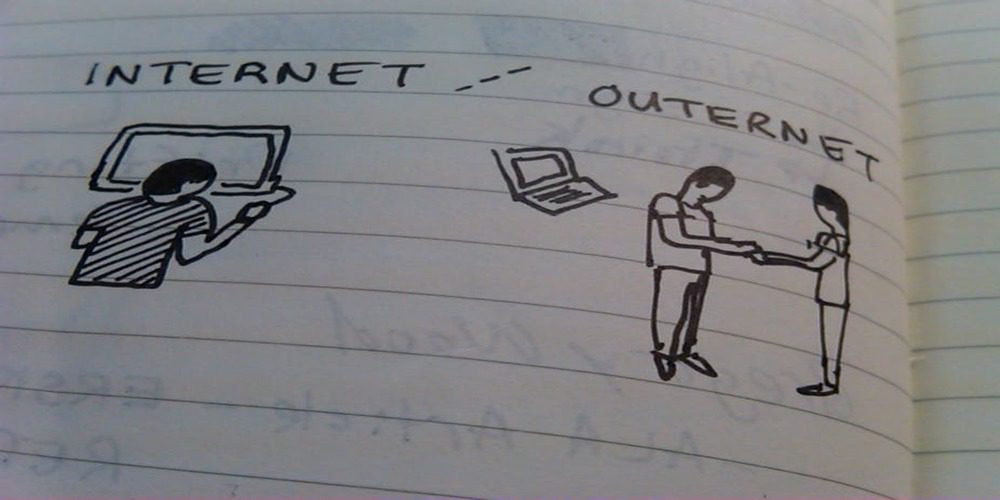 INTERNET --- OUTERNET